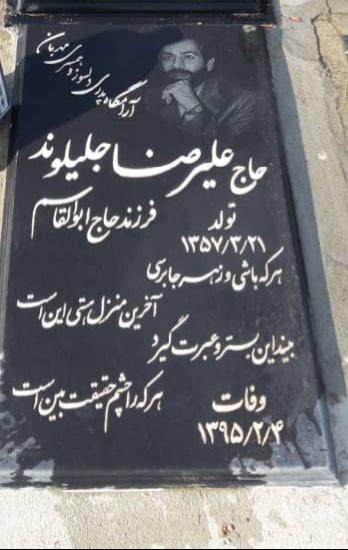 آرامگاه پدری دلسوز و همسری مهربان
حاج علیرضا جلیلوند
فرزند حاج ابوالقاسم
تولد
۱۳۵۷/۳/۲۱
هر که باشی و ز هر جا برسی
آخرین منزل هستی این است
بیند این بستر و عبرت گیرد
هر که را چشم حقیقت بین است
وفات
۱۳۹۵/۲/۴